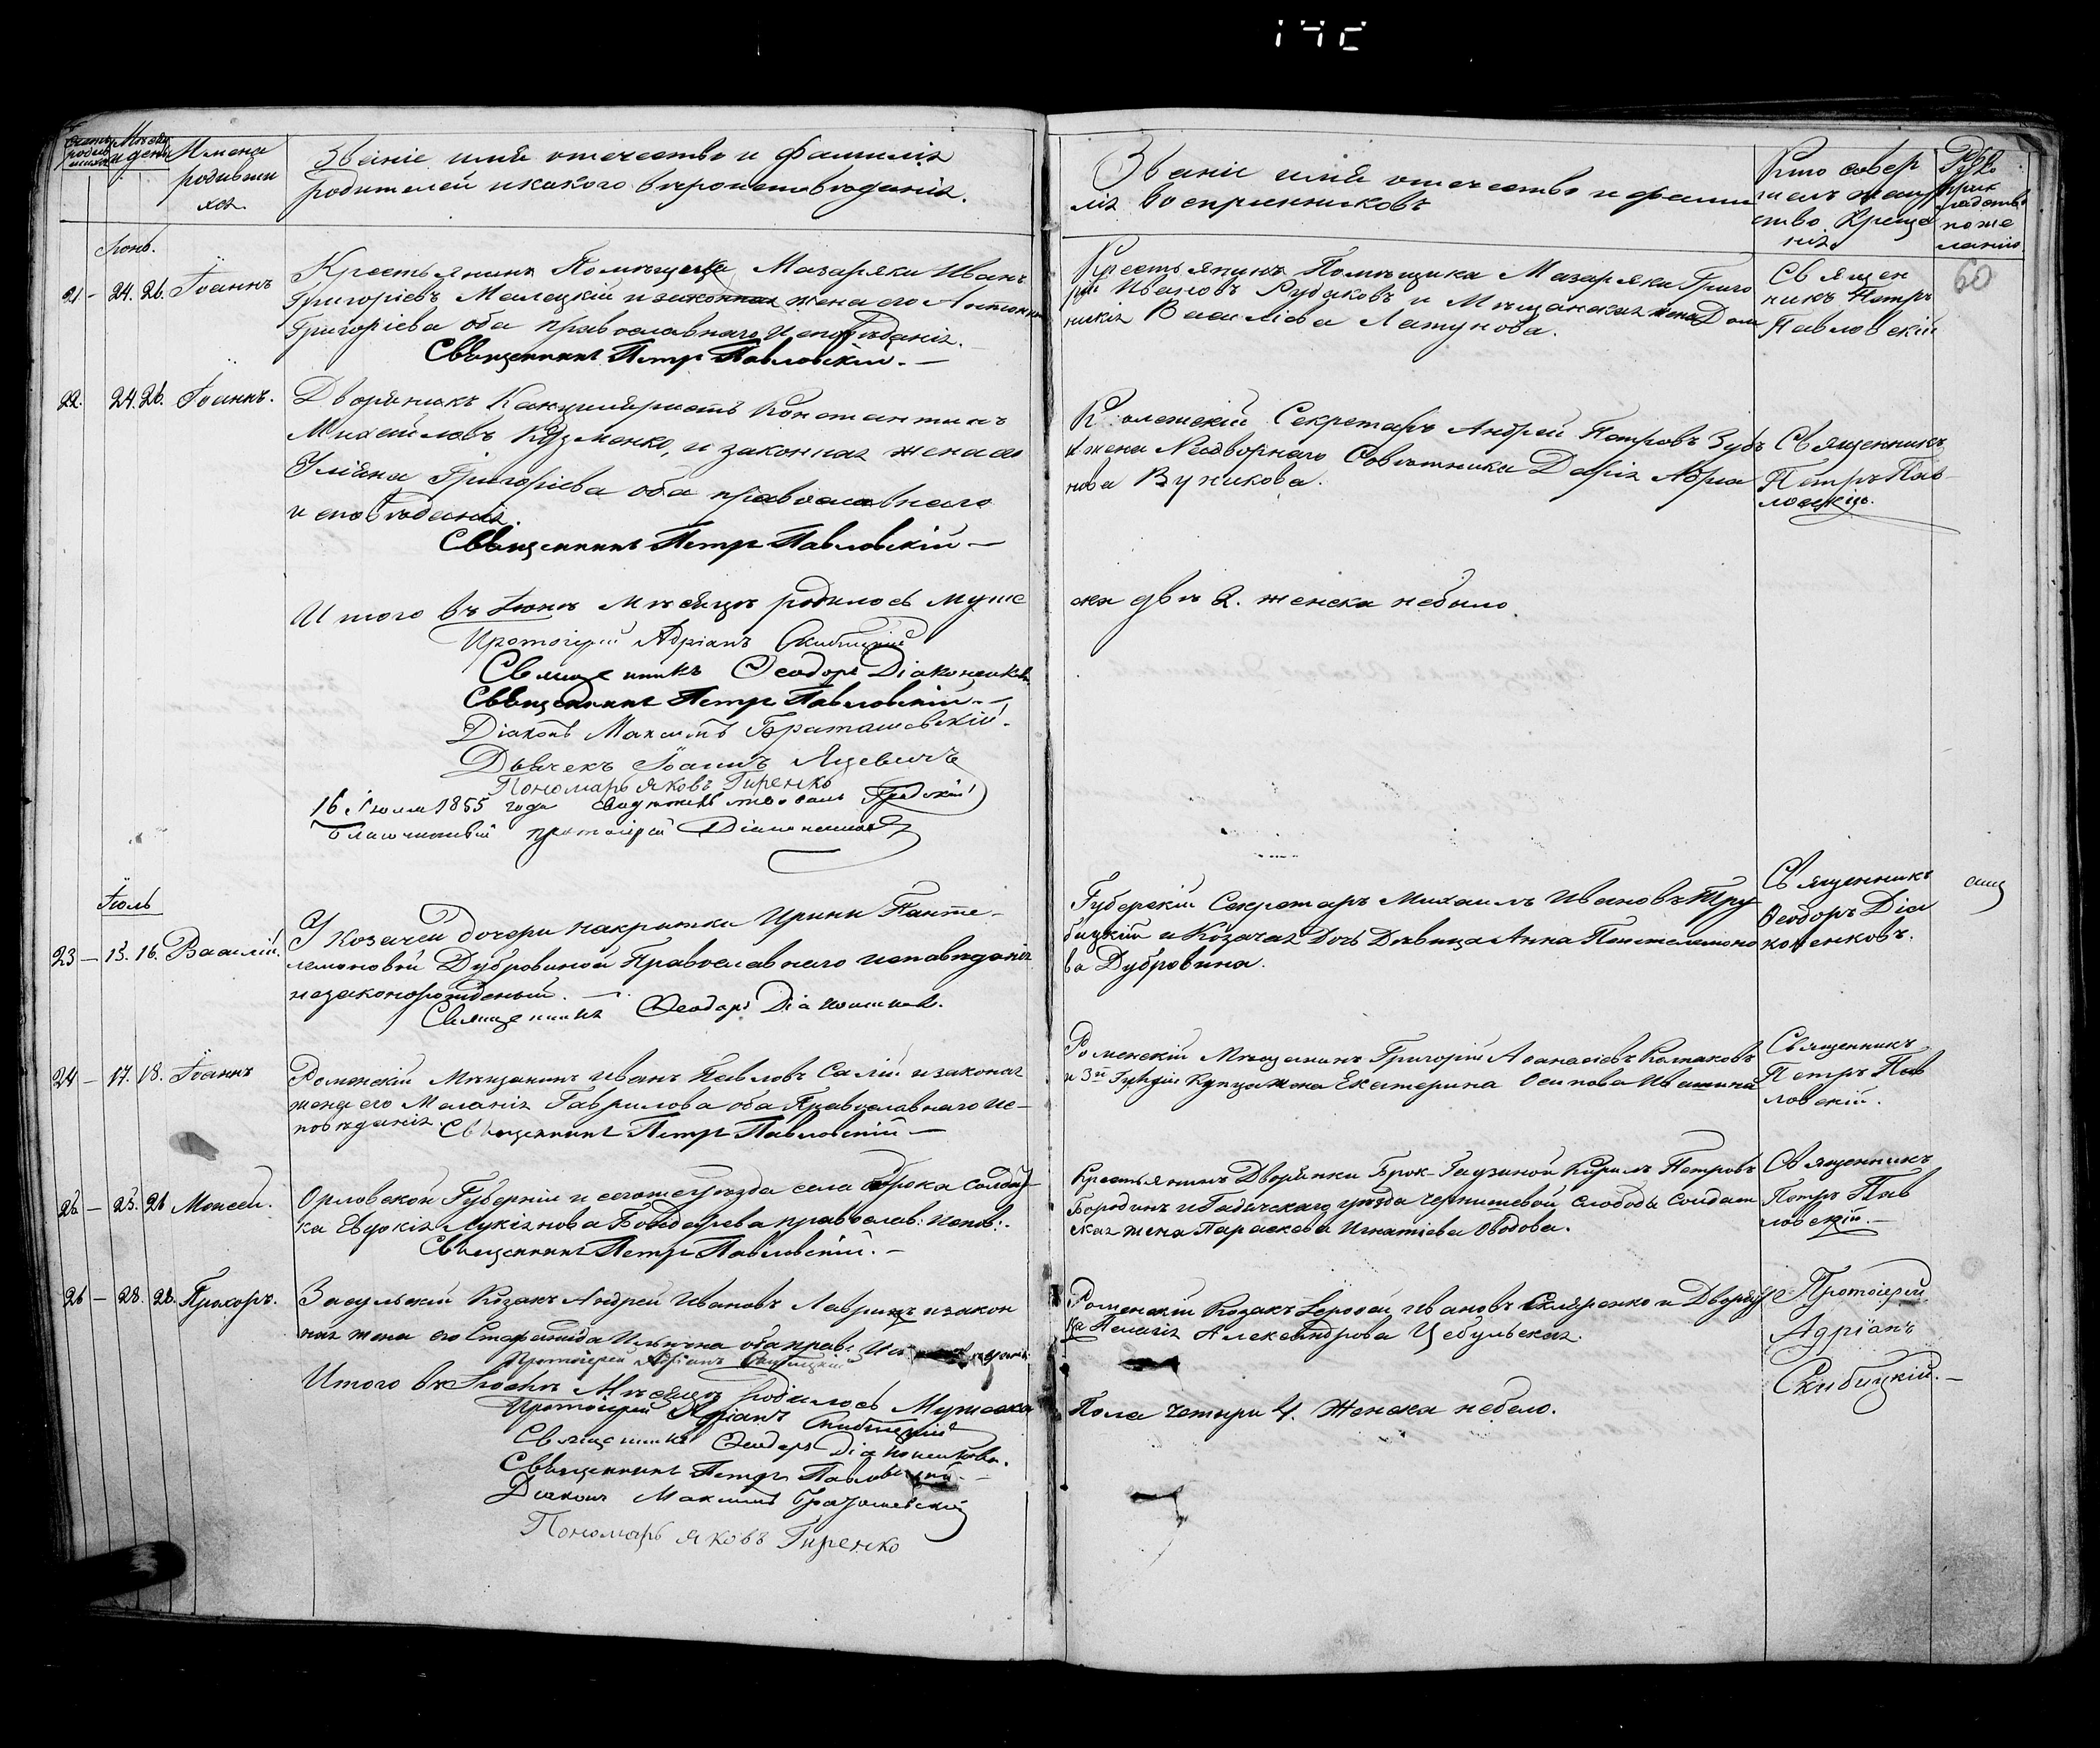 Счетъ родившихся
Мѣсяцъ и день
Имена
родивши
хся.
Званіе имя отечество и фамилія
родителей и какого вѣроисповѣданія.
Званіе имя отечество и фами
лія воспріемниковъ
Кто совер
шалъ таин
ство Креще
нія
Руко
прик
ладство
по же
ланію
60
Іюнь.
21 - 24. 26. Іоаннъ
Крестьянинъ Помѣщика Мазараки Иванъ
Григоріевъ Малецкій и законная жена его
Григоріева оба православнаго исповѣданія.
Священникъ Петръ Павловскій. -
Крестьянинъ Помѣщика Мазараки Григо
рій Ивановъ Рудаковъ и Мѣщанская жена Дом
никія Василіева Латунова.
Священ
никъ Петръ
Павловскій
22. 24. 26. Іоаннъ.
Дворянинъ Канцеляристъ Константинъ
Михайловъ Кузменко, и законная жена его
Уліяна Григоріева оба православнаго
исповѣданія.
Священникъ Петръ Павловскій -
Колежскій Секретарь Андрей Петровъ Зубъ
и жена Надворнаго Совѣтника Дарія Адріа
нова Вуникова.
Священникъ
Петръ Пав
ловскій.
Итого въ Іюнѣ Мѣсяцѣ родилось муже
ска два 2. женска небыло.
Протоіерей Адріанъ Скибицкій
Священникъ Феодоръ Діаконенковъ
Священникъ Петръ Павловскій. -
Діаконъ Максимъ Браташевскій.
Дьячекъ Іоаннъ Яцевичъ
Пономарь Яковъ Гиренко
16 Іюля 1855 года свидѣтельствовалъ Градскій
Благочинный протоіерей
Іюль
23 - 15. 16. Василій.
У козачей дочери накрытки Ирины Панте-
леимоновой Дубровиной Православнаго исповѣданія
незаконорожденный. -
Священникъ Феодоръ Діаконенковъ.
Губерскій Секретарь Михаилъ Ивановъ Тру
бицкій и Козачая Дочь Дѣвица Анна Пантелеимоно
ва Дубровина.
Священникъ
Феодоръ Діа
коненковъ.
24 - 17. 18. Іоаннъ
Роменскій Мѣщанинъ Иванъ Павловъ Салій и законая
жена его Маланія Гаврилова оба Православнаго ис-
повѣданія. Священникъ Петръ Павловскій -
Роменскій Мѣщанинъ Григорій Афанасіевъ Колпаковъ
и 3й Гильдіи Купца жена Екатерина Осипова Ивашина
Священникъ
Петръ Пав
ловскій.
25 - 25. 26 Моисей.
Орловской Губерніи и сегоже уѣзда села солдат
ка Евдокія Лукіянова Бондарева православ: испов:.
Священникъ Петръ Павловскій. -
Крестьянинъ Дворянки Брок-Гаузиной Кирилъ Петровъ
Бородинъ и Гадячскаго уѣзда слободы солдат
ская жена Параскева Игнатіева Оводова.
Священникъ
Петръ Пав
ловскій. -
26 - 28. 28. Прохоръ.
Засульскій Козакъ Андрей Ивановъ Лавринъ и закон
ная жена его Стефанида Ильична оба прав:
Протоіерей Адріанъ Скибицкій
Роменскій Козакъ Ивановъ Скляренко и Дворян
ка Пелагія Александрова Цебульская.
Протоіерей
Адріанъ
Скибицкій. -
Итого въ Іюлѣ Мѣсяцѣ родилось Мужеска
Пола четыри 4. Женска небыло.
Протоіерей Адріанъ Скибицкій
Священникъ Феодоръ Діаконенковъ.
Священникъ Петръ Павловскій. -
Діаконъ Максимъ Браташевскій
Пономарь Яковъ Гиренко